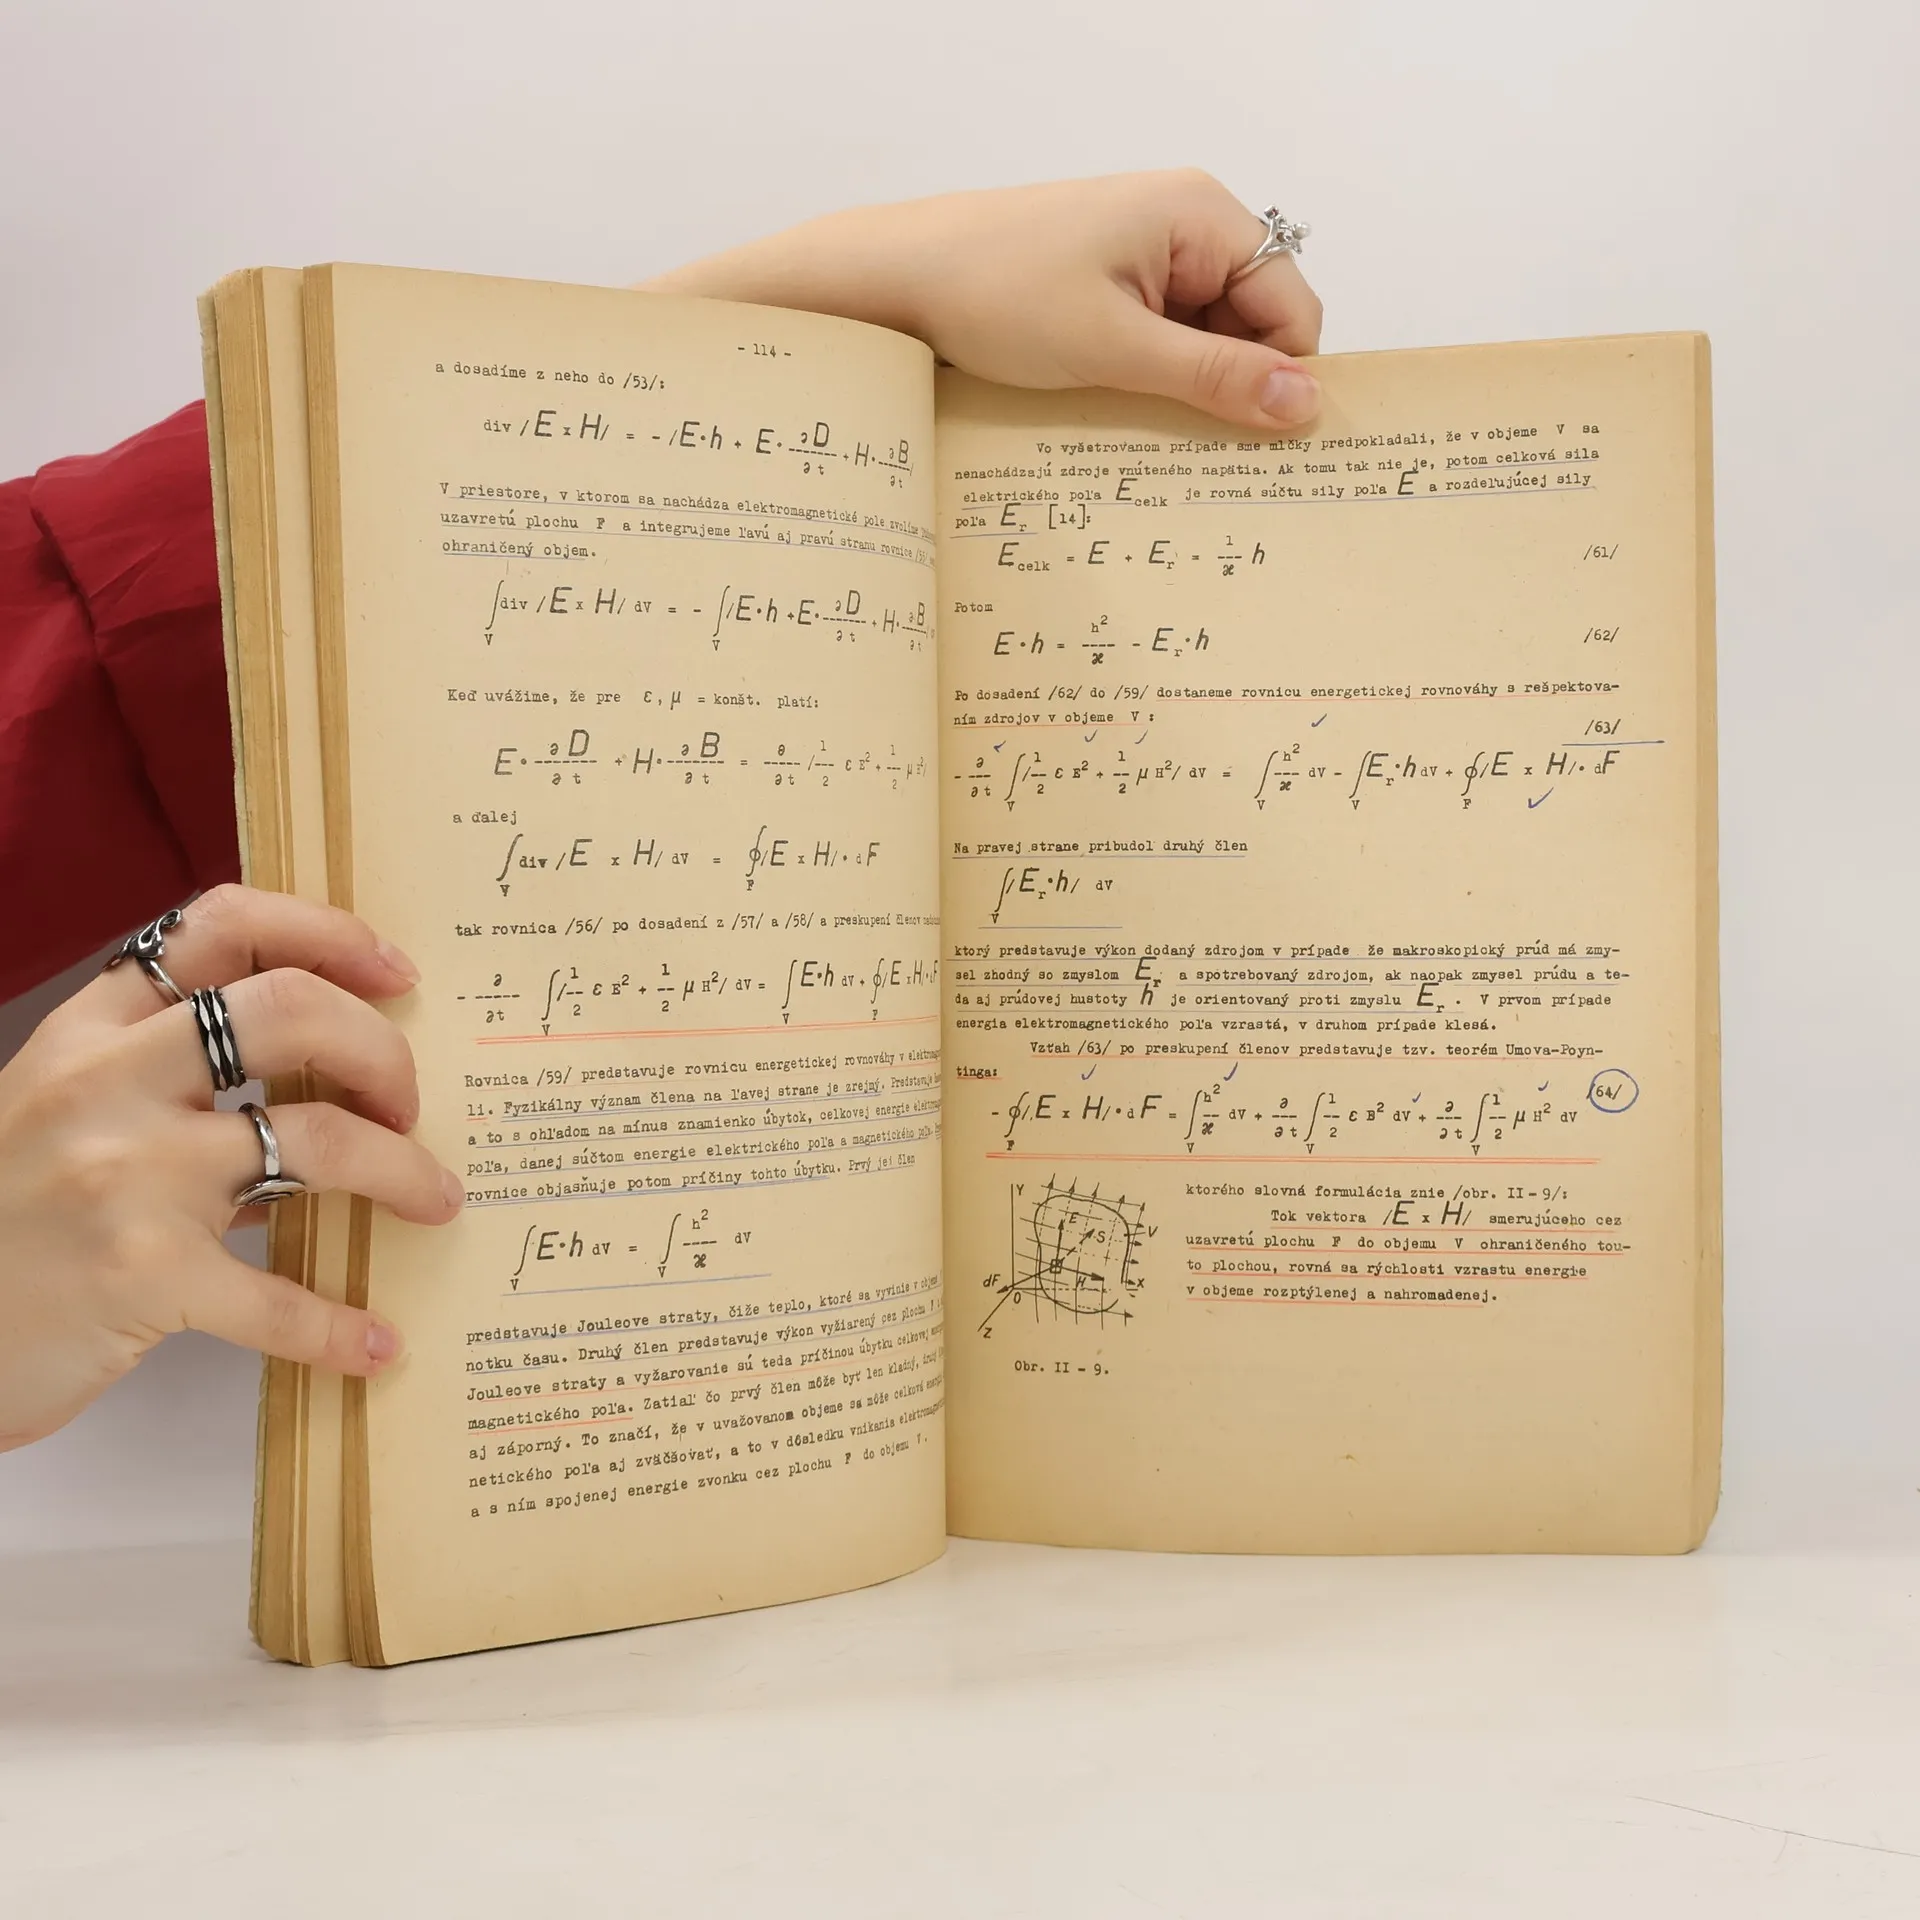 - 114 -
a dosadíme z neho do /53/:
div /E x H/ = - /E·h + E· ∂D/∂t + H· ∂B/∂t /
V priestore, v ktorom sa nachádza elektromagnetické pole zvolíme
uzavretú plochu F a integrujeme ľavú aj pravú stranu rovnice /55/
ohraničený objem.
∫V div /E x H/ dV = - ∫V /E·h + E· ∂D/∂t + H· ∂B/∂t /
Keď uvážime, že pre ε, μ = konšt. platí:
E· ∂D/∂t + H· ∂B/∂t = ∂/∂t /1/2 ε E² + 1/2 μ H²/
a ďalej
∫V div /E x H/ dV = ∮F /E x H/ · dF
tak rovnica /56/ po dosadení z /57/ a /58/ a preskupení členov
- ∂/∂t ∫V /1/2 ε E² + 1/2 μ H²/ dV = ∫V E·h dV + ∮F /E x H/ · dF
Rovnica /59/ predstavuje rovnicu energetickej rovnováhy v
li. Fyzikálny význam člena na ľavej strane je zrejmý. Predstavuje
a to s ohľadom na mínus znamienko úbytok, celkovej energie
poľa, danej súčtom energie elektrického poľa a magnetického poľa.
rovnice objasňuje potom príčiny tohto úbytku. Prvý jej člen
∫V E·h dV = ∫V h²/ϰ dV
predstavuje Jouleove straty, čiže teplo, ktoré sa vyvinie v objeme
notku času. Druhý člen predstavuje výkon vyžiarený cez plochu F
Jouleove straty a vyžarovanie sú teda príčinou úbytku celkovej
magnetického poľa. Zatiaľ čo prvý člen môže byť len kladný, druhý
aj záporný. To značí, že v uvažovanom objeme sa môže celková
netického poľa aj zväčšovať, a to v dôsledku vnikania
a s ním spojenej energie zvonku cez plochu F do objemu V.
Vo vyšetrovanom prípade sme mlčky predpokladali, že v objeme V sa
nenachádzajú zdroje vnúteného napätia. Ak tomu tak nie je, potom celková sila
elektrického poľa E celk je rovná súčtu sily poľa E a rozdeľujúcej sily
poľa Er [14]:
E celk = E + Er = 1/ϰ h /61/
Potom
E·h = h²/ϰ - Er·h /62/
Po dosadení /62/ do /59/ dostaneme rovnicu energetickej rovnováhy s rešpektova-
ním zdrojov v objeme V :
/63/
- ∂/∂t ∫V /1/2 ε E² + 1/2 μ H²/ dV = ∫V h²/ϰ dV - ∫V Er·h dV + ∮F /E x H/ · dF
Na pravej strane pribudol druhý člen
∫V /Er·h/ dV
ktorý predstavuje výkon dodaný zdrojom v prípade že makroskopický prúd má zmy-
sel zhodný so zmyslom Er a spotrebovaný zdrojom, ak naopak zmysel prúdu a te-
da aj prúdovej hustoty h je orientovaný proti zmyslu Er . V prvom prípade
energia elektromagnetického poľa vzrastá, v druhom prípade klesá.
Vzťah /63/ po preskupení členov predstavuje tzv. teorém Umova-Poyn-
tinga:
- ∮F /E x H/ · dF = ∫V h²/ϰ dV + ∂/∂t ∫V 1/2 ε E² dV + ∂/∂t ∫V 1/2 μ H² dV /64/
Y
E
V
S
H
dF
X
O
Z
Obr. II - 9.
ktorého slovná formulácia znie /obr. II-9/:
Tok vektora /E x H/ smerujúceho cez
uzavretú plochu F do objemu V ohraničeného tou-
to plochou, rovná sa rýchlosti vzrastu energie
v objeme rozptýlenej a nahromadenej.